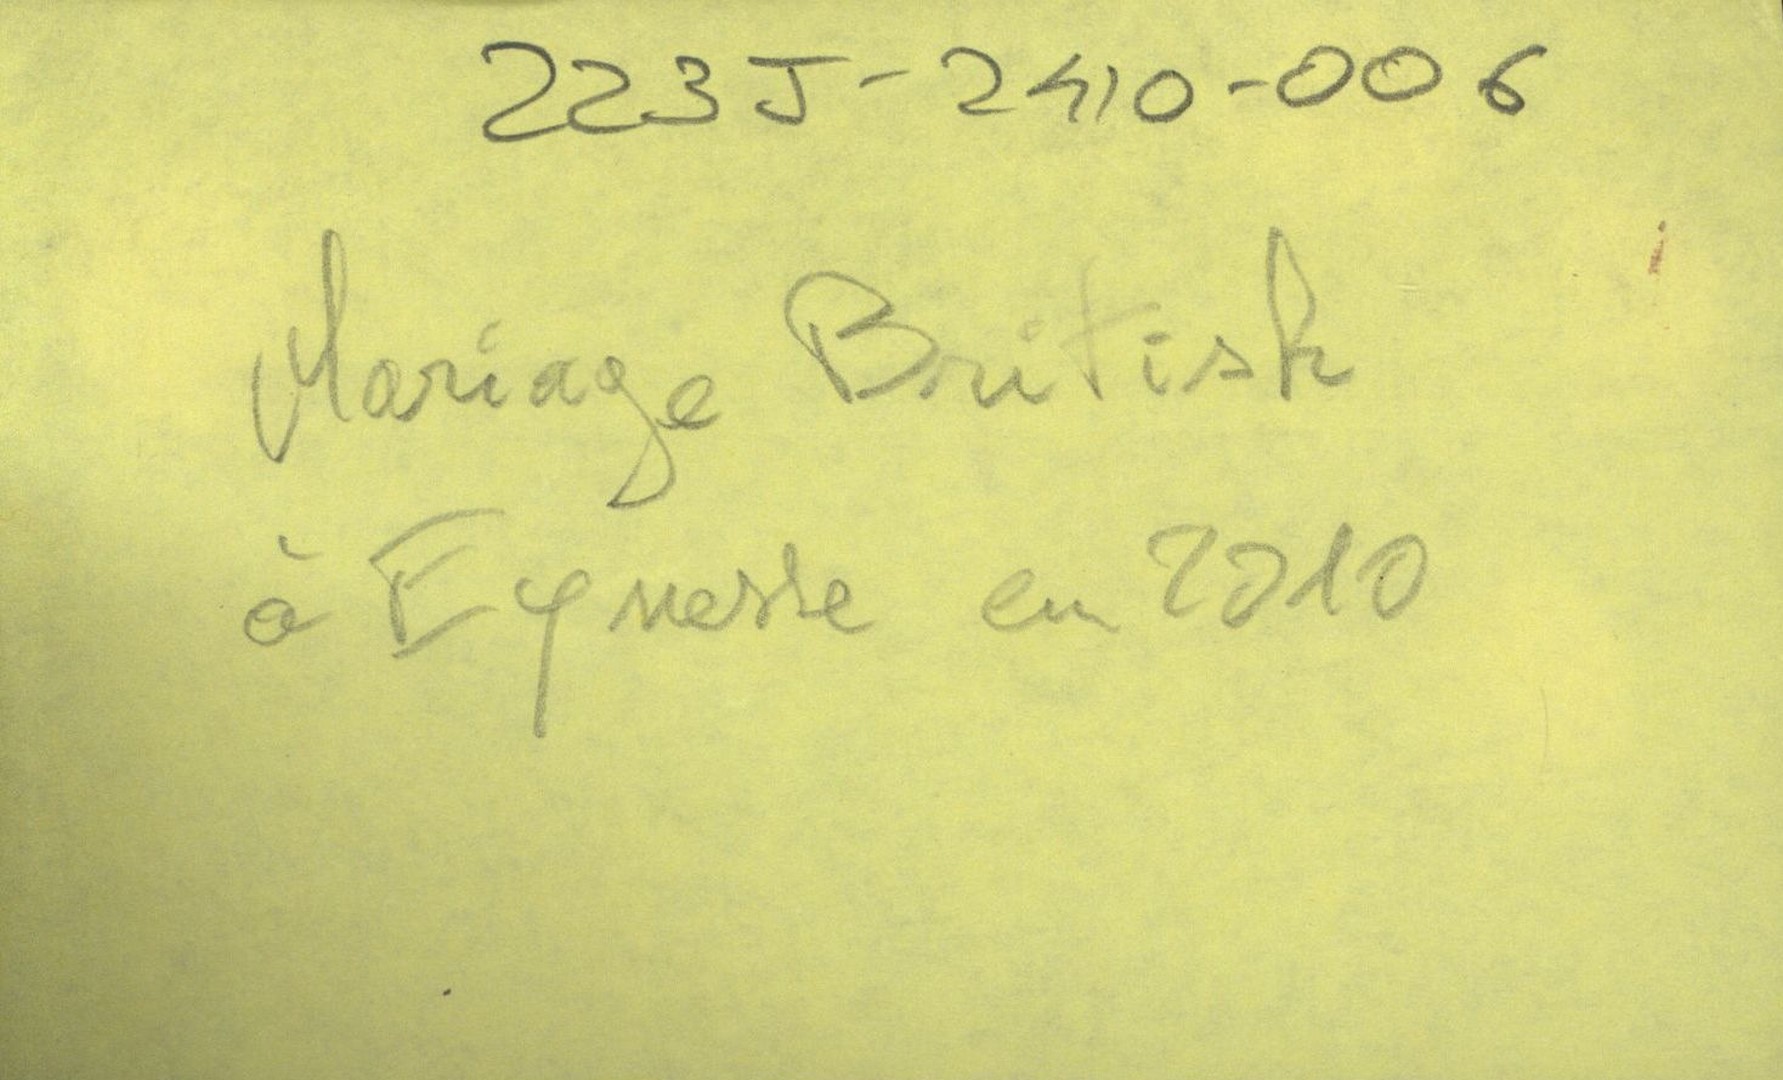 223J-2410-006
Mariage British
à Eynesse en 2010